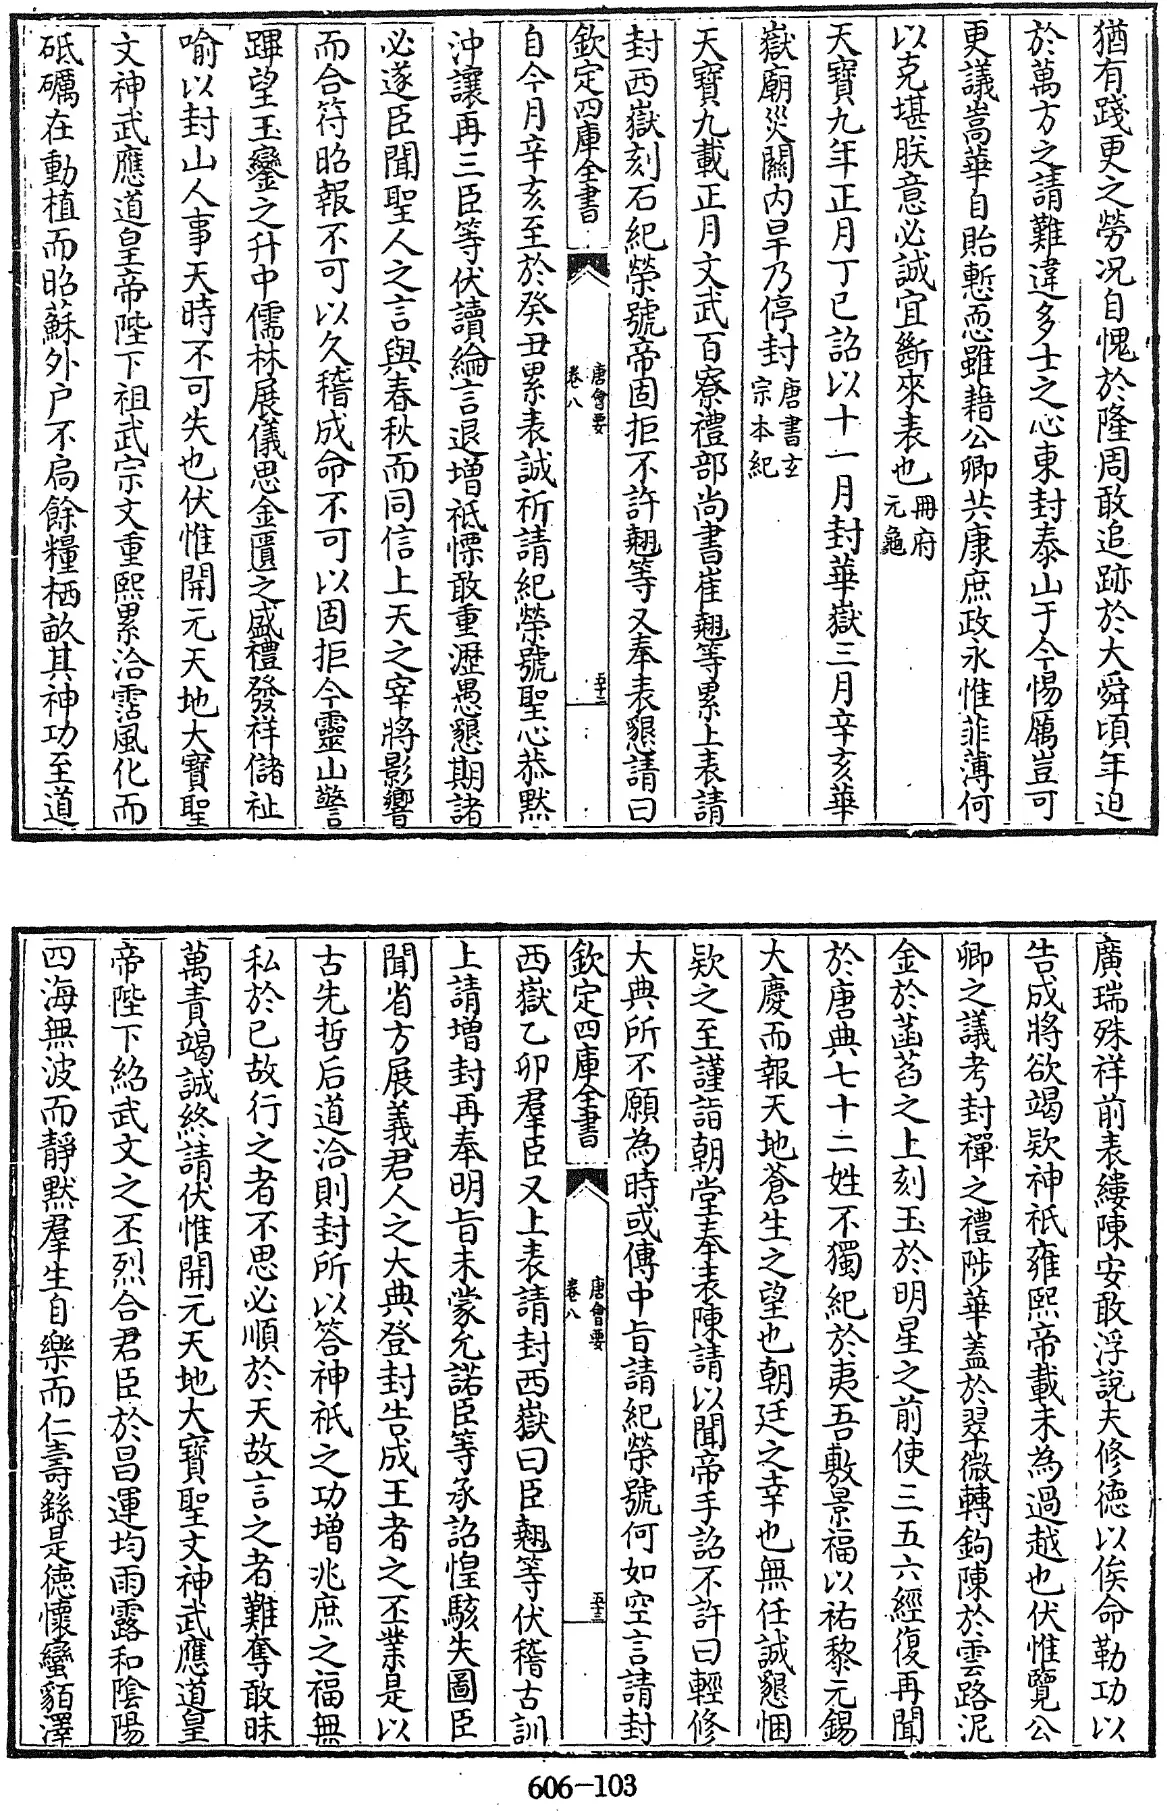 猶有踐更之勞況自愧於隆周敢追跡於大舜頃年迫
於萬方之請難違多士之心東封泰山于今惕厲豈可
更議嵩華自貽慙恧雖藉公卿共康庶政永惟菲薄何
以克堪朕意必誠宜斷來表也冊府元龜
天寶九年正月丁巳詔以十一月封華嶽三月辛亥華
嶽廟災關內旱乃停封唐書玄宗本紀
天寶九載正月文武百寮禮部尚書崔翹等累上表請
封西嶽刻石紀榮號帝固拒不許翹等又奉表懇請曰
欽定四庫全書 唐會要卷八 五十二
自今月辛亥至於癸丑累表誠祈請紀榮號聖心恭默
沖讓再三臣等伏讀綸言退增祗慄敢重瀝愚懇期諸
必遂臣聞聖人之言與春秋而同信上天之宰將影響
而合符昭報不可以久稽成命不可以固拒今靈山警
蹕望玉鑾之升中儒林展儀思金匱之盛禮發祥儲祉
喻以封山人事天時不可失也伏惟開元天地大寶聖
文神武應道皇帝陛下祖武宗文重熙累洽霑風化而
砥礪在動植而昭蘇外户不扃餘糧栖畝其神功至道
廣瑞殊祥前表縷陳安敢浮說夫修德以俟命勒功以
告成將欲竭欵神祇雍熙帝載未為過越也伏惟覽公
卿之議考封禪之禮陟華蓋於翠微轉鉤陳於雲路泥
金於菡萏之上刻玉於明星之前使三五六經復再聞
於唐典七十二姓不獨紀於夷吾敷景福以祐黎元錫
大慶而報天地蒼生之望也朝廷之幸也無任誠懇悃
欵之至謹詣朝堂奉表陳請以聞帝手詔不許曰輕修
大典所不願為時或傳中旨請紀榮號何如空言請封
欽定四庫全書 唐會要卷八 五十三
西嶽乙卯羣臣又上表請封西嶽曰臣翹等伏稽古訓
上請增封再奉明旨未蒙允諾臣等承詔惶駭失圖臣
聞省方展義君人之大典登封告成王者之丕業是以
古先哲后道洽則封所以答神祇之功增兆庶之福無
私於已故行之者不思必順於天故言之者難奪敢昧
萬責竭誠終請伏惟開元天地大寶聖文神武應道皇
帝陛下紹武文之丕烈合君臣於昌運均雨露和陰陽
四海無波而靜默羣生自樂而仁壽繇是德懷蠻貊澤
606-103